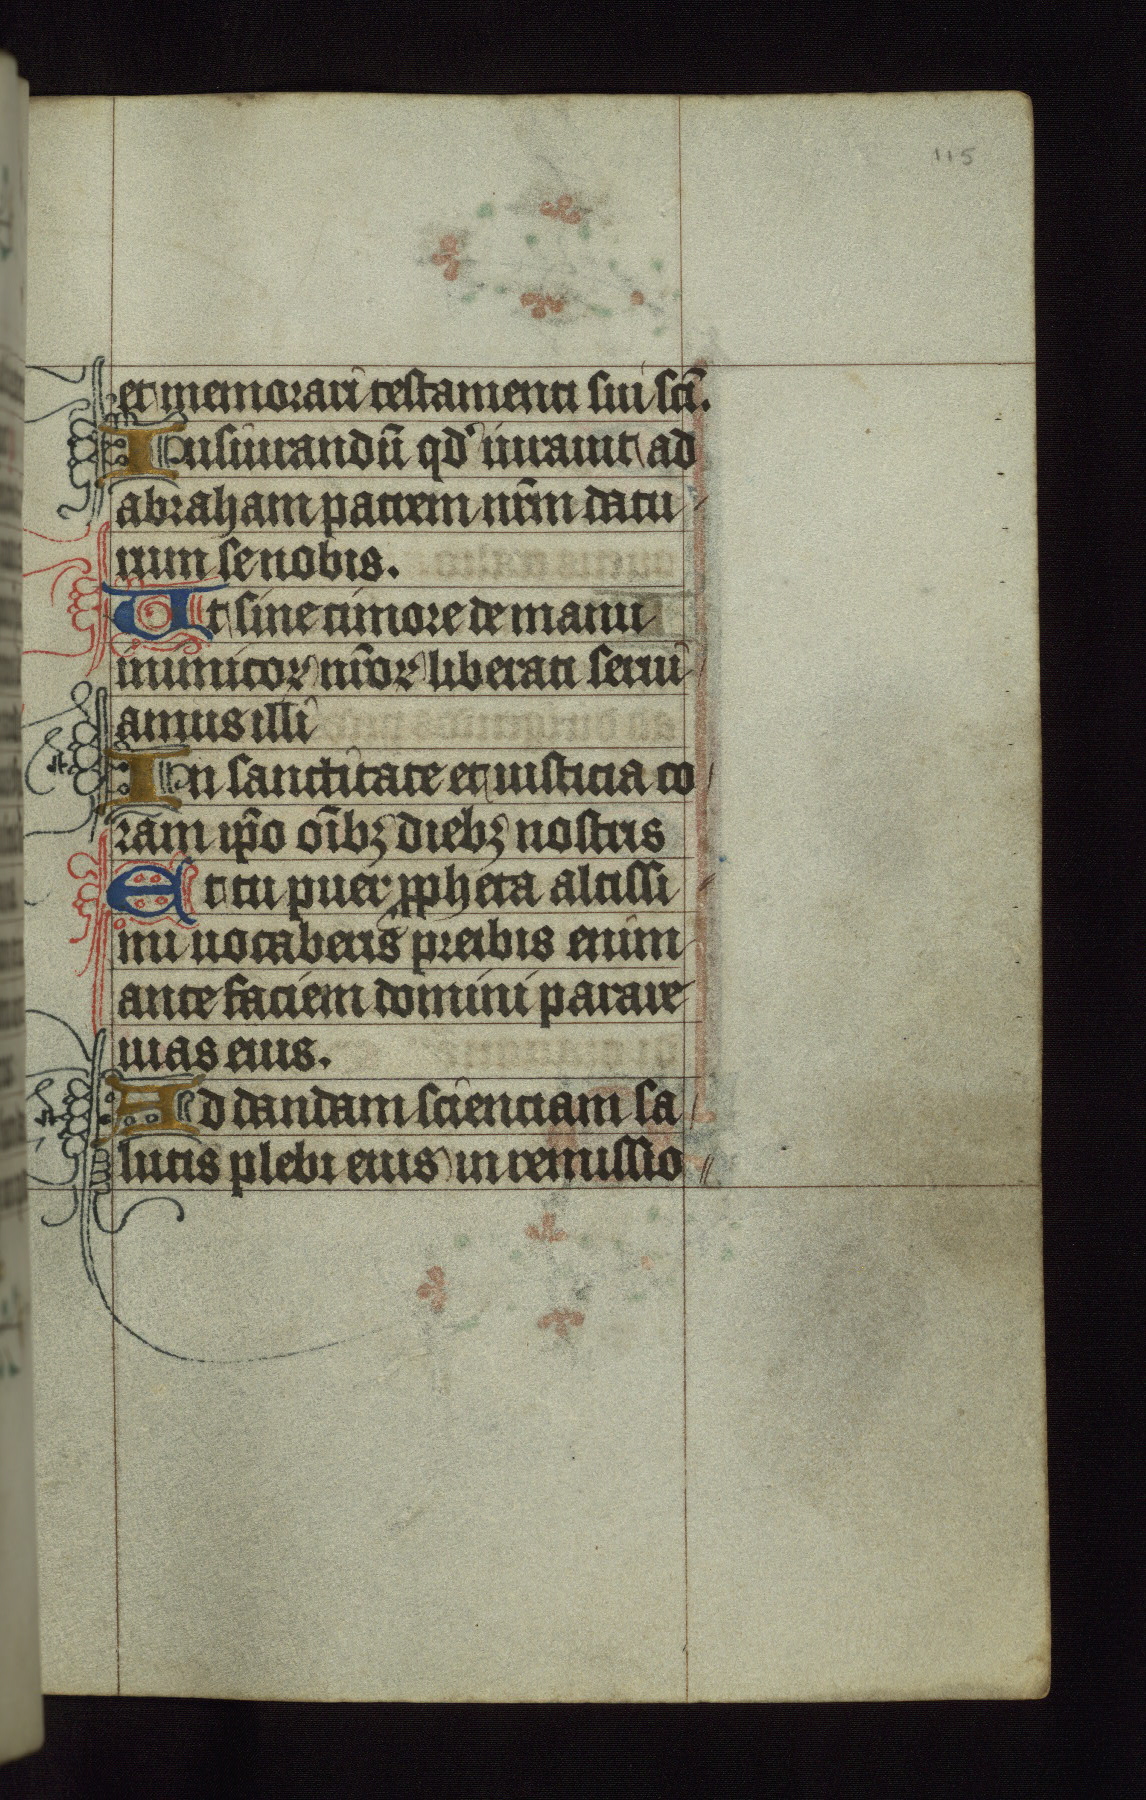 115
et memorari testamenti sui scī.
Iusiurandū qd' iuravit ad
abraham patrem nr̄m datu
rum se nobis.
Ut sine timore de manu
inimicoꝝ nr̄oꝝ liberati servi
amus illi
In sanctitate et iusticia co
ram ip̄o oībꝫ diebꝫ nostris
Et tu puer ꝓpheta altissi
mi vocaberis preibis enim
ante faciem domini parare
vias eius.
Ad dandam scienciam sa
lutis plebi eius in remissio